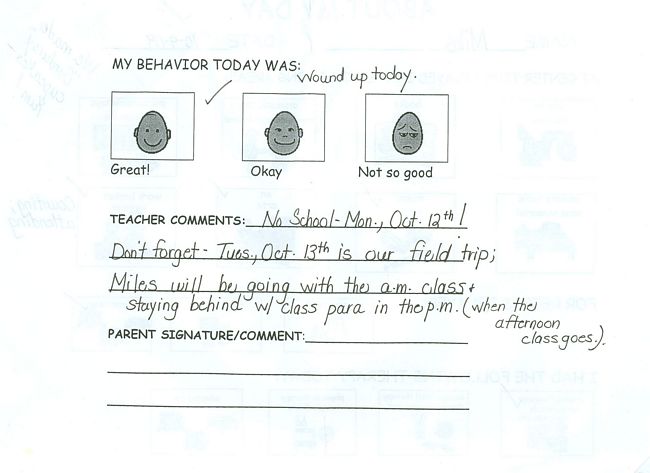 MY BEHAVIOR TODAY WAS:
Wound up today.
Great!
Okay
Not so good
TEACHER COMMENTS: No School - Mon., Oct. 12th!
Don't forget - Tues., Oct. 13th is our field trip;
Miles will be going with the a.m. class +
staying behind w/ class para in the p.m. (when the
afternoon
class goes.).
PARENT SIGNATURE/COMMENT: